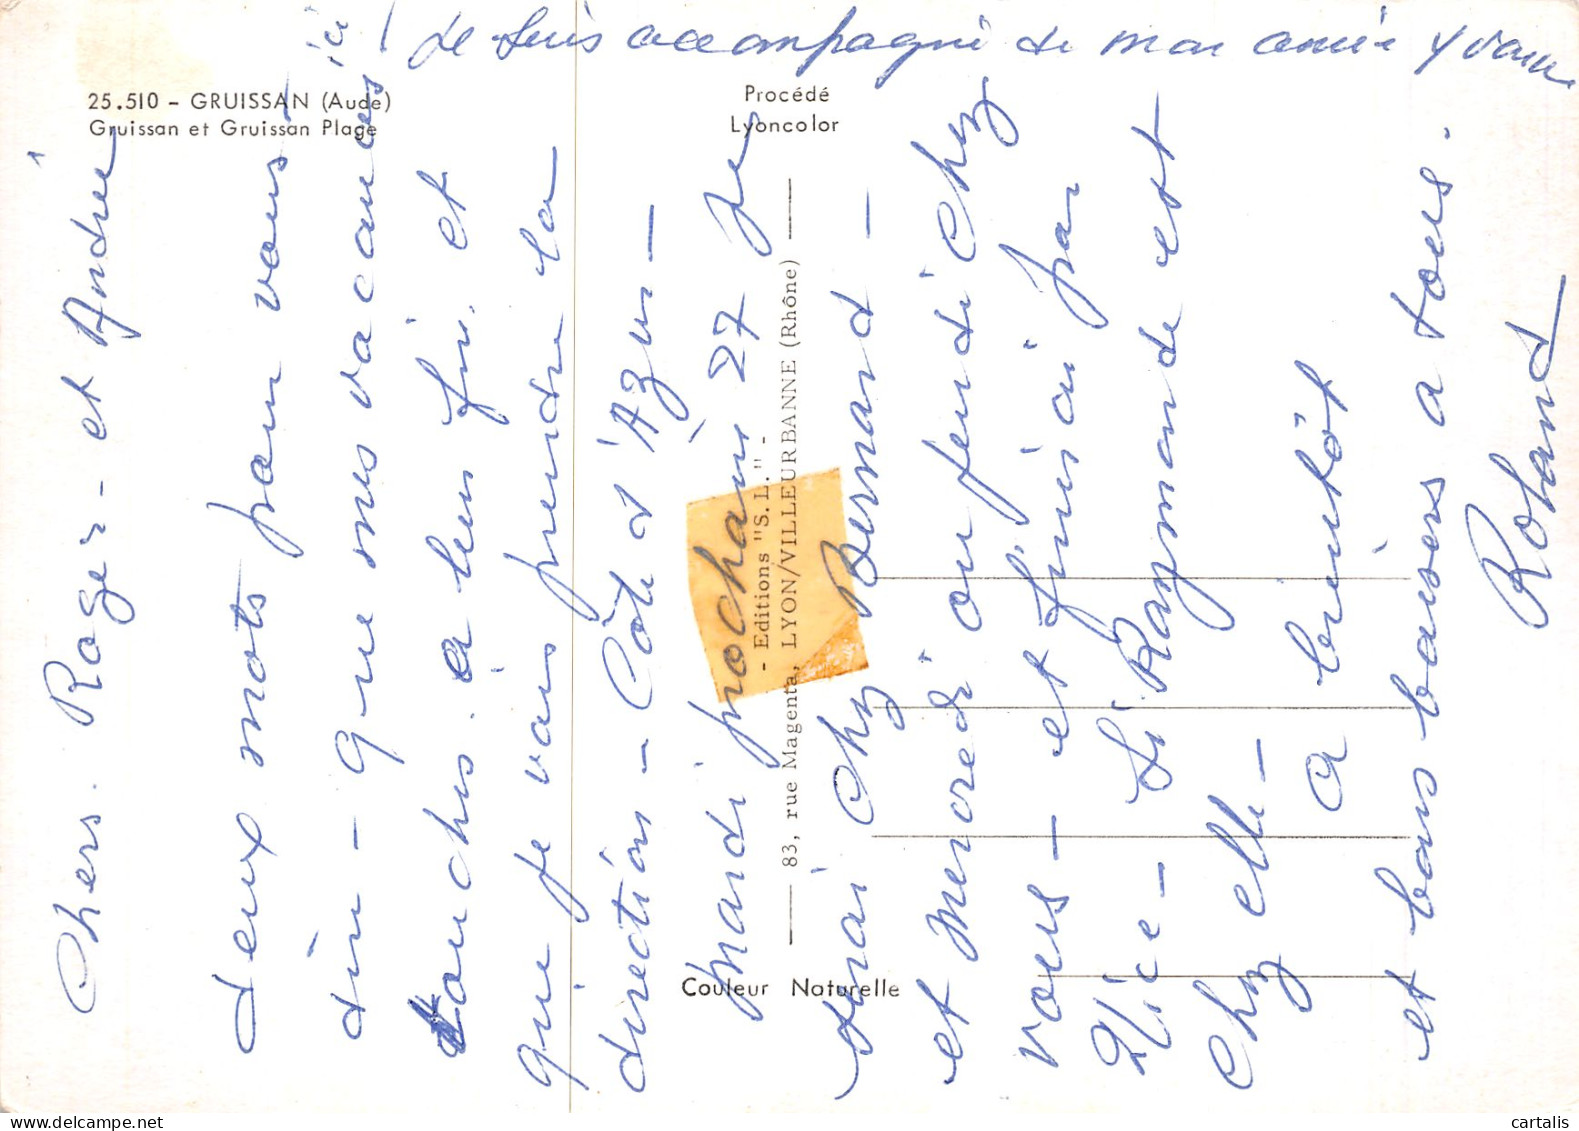 25.510 – GRUISSAN (Aude)
Gruissan et Gruissan Plage
Procédé
Lyoncolor
- Editions "S. L." -
83, rue Magenta, LYON/VILLEURBANNE (Rhône)
Couleur Naturelle
Chers. Roger - et Andrée
deux mots pour vous
dire - que mes vacances ici
touches a leur fin. et
que je vais prendre la
direction - Côte d'Azur -
mardi prochain 27 je
serai chez Bernard -
et Mercredi ou jeudi chez
vous - et finirai par
Nice - Raymonde est
chez elle -
a bientôt
et bons baisers a tous.
Roland
Je suis accompagné de mon amie Yvonne